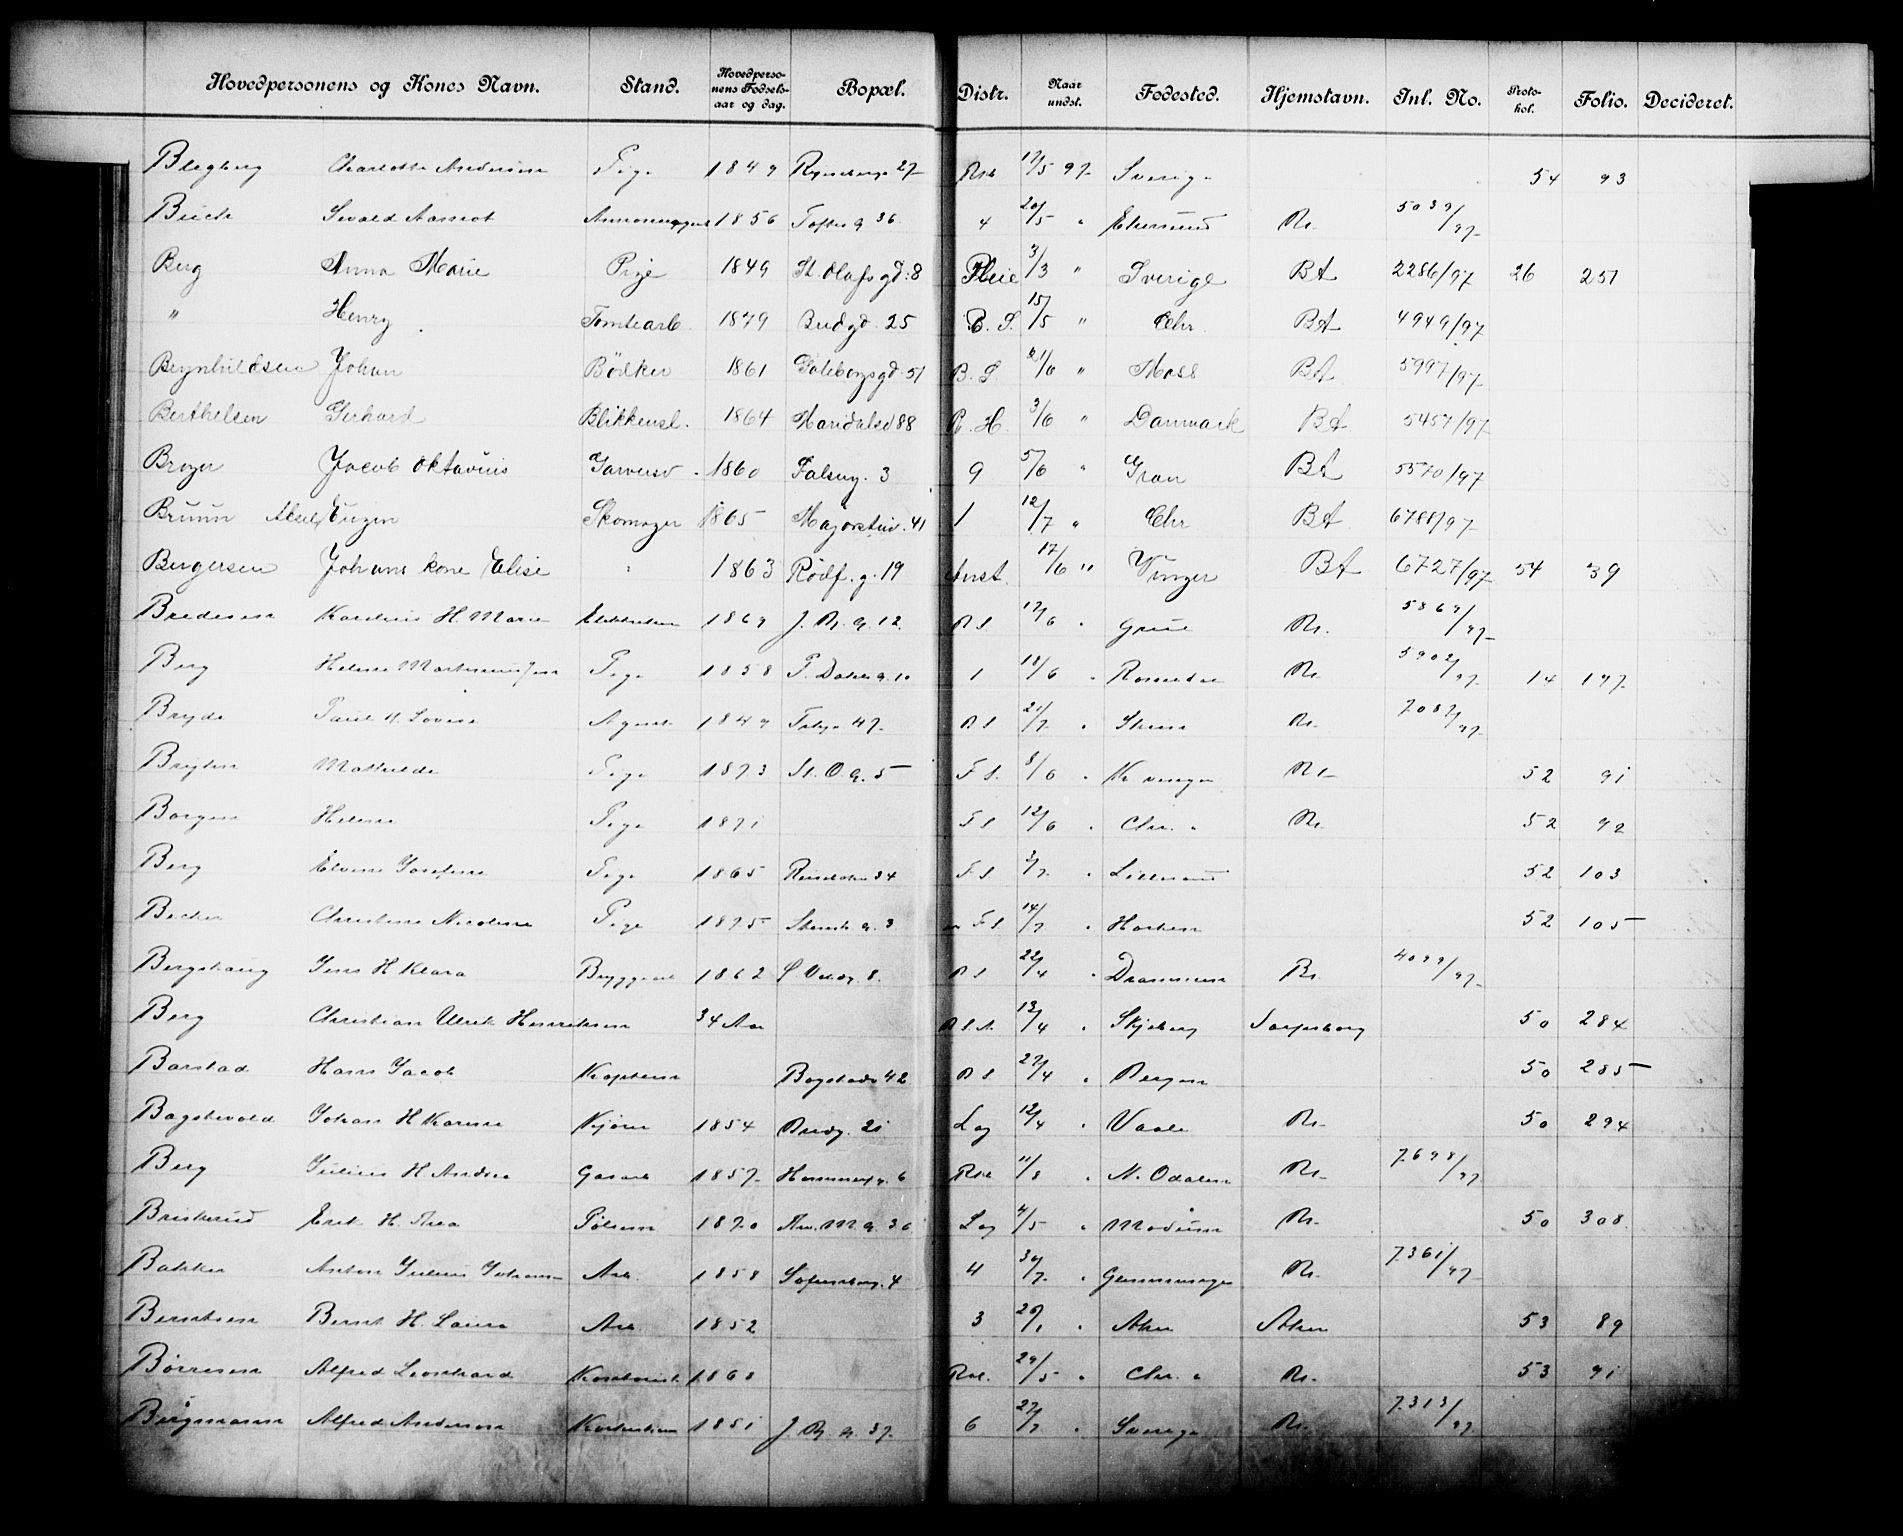 Hovedpersonens og Kones Navn. Stand. Hovedpersonens Fødselsaar og dag. Bopæl. Distr. Naar undst. Fødested. Hjemstavn. Inl. No. Protokol. Folio. Decideret.
Blegberg Charlotte Andersen Pige 1849 27 Rst 17/5 97 Sverige 54 93
Buch Sivald 1856 Toftes g 36 4 20/5 " Ekersund Kr. 5039/97
Berg Anna Marie Pige 1849 St. Olafs gd. 8 Pleie 3/3 " Sverige BA 2286/97 26 251
" Henry Tomtearb. 1879 Bredgd. 25 B. S. 15/5 " Chr. BA 4949/97
Brynhildsen Johan Bödker 1861 Göteborgsgd. 51 B. S. 21/6 " Moss BA 5997/97
Berthelsen Gerhard Blikkensl. 1864 Maridalsv 88 R. H. 3/6 " Danmark BA 5457/97
Broger Jacob Oktavius Garversv. 1860 Falseng. 3 9 5/6 " Gran BA 5570/97
Bruun Axel Eugen Skomager 1865 Majorstuv. 41 1 12/7 " Chr BA 6788/97
Bergersen Johans kone Elise " 1863 Rödf. g. 19 Anst. 17/6 " Vinger BA 6727/97 54 39
Bredesen Karelius H. Marie 1869 J. B. g. 12. B S 17/6 " Grue Kr. 5869/97
Berg Helene Martinius Pige 1858 P. Dahls g. 10 1 18/6 " Romedal Kr 5902/97 14 197
Bryde Paul H. Lovise Agent 1849 47 B S 21/7 " Skien Kr. 7087/97
Mathilde Pige 1873 St. O. g. 5 F S. 8/6 " Kvinger Kr 52 91
Borgen Helene Pige 1871 F S 12/6 " Chr. " Kr. 52 92
Berg Elvine Josefine Pige 1865 34 F S 2/7 " Lillesand 52 103
Becker Christine Nicoline Pige 1875 Stensb. g. 3 F S 14/7 " Horten 52 105
Bergshaug Jens H Klara Bryggearb 1862 8. B S 22/4 " Drammen Kr. 4099/97
Berg Christian Ulrik Henriksen 34 Aar B.S.A. 13/4 " Skjeberg Sarpsborg 50 284
Barstad Hans Jacob Kaptein Bogstadv 42 B S 27/4 " Bergen 50 285
Bagstevold Johan H Karine Kjører 1854 Bredg. 21 Lag 12/4 " Vaale Kr 50 294
Berg Julius H. Andrea Gasarb 1857 Hammersb. g. 6 Rst 11/8 " N. Odalen Kr 7698/97
Briskerud Erik H. Thea Pølsem 1870 Thv. M. g. 36 Lag 4/5 " Modum Kr. 50 308
Bakker Anton Julius Johansen Arb. 1858 Sofienberg. 4 4 30/7 " Glemminge Kr. 7361/97
Berntsen Bernt H. Laura Arb. 1852 3 20/1 " Aker Aker 53 89
Børresen Alfred Leonhard Kontorist 1868 Rst. 29/5 " Chr. " Kr. 53 91
Bergmann Alfred Andersen 1851 J. B. g. 37. 6 27/7 " Sverige Kr. 7313/97